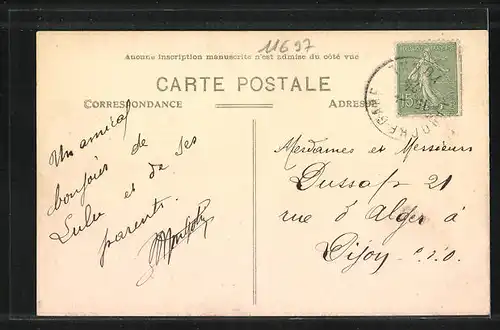 11697
Aucune inscription manuscrite n'est admise du côté vue
CARTE POSTALE
CORRESPONDANCE
ADRESSE
Un amical
bonjour de
Lulu et de ses
parents.
Mesdames et Messieurs
Dussap 21
rue d'Alger à
Dijon C.d.O.